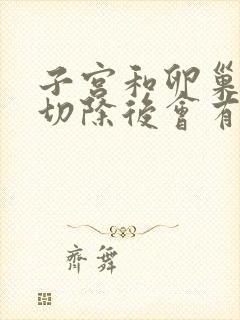 子宮和卵巢
切除後會有
齊舞